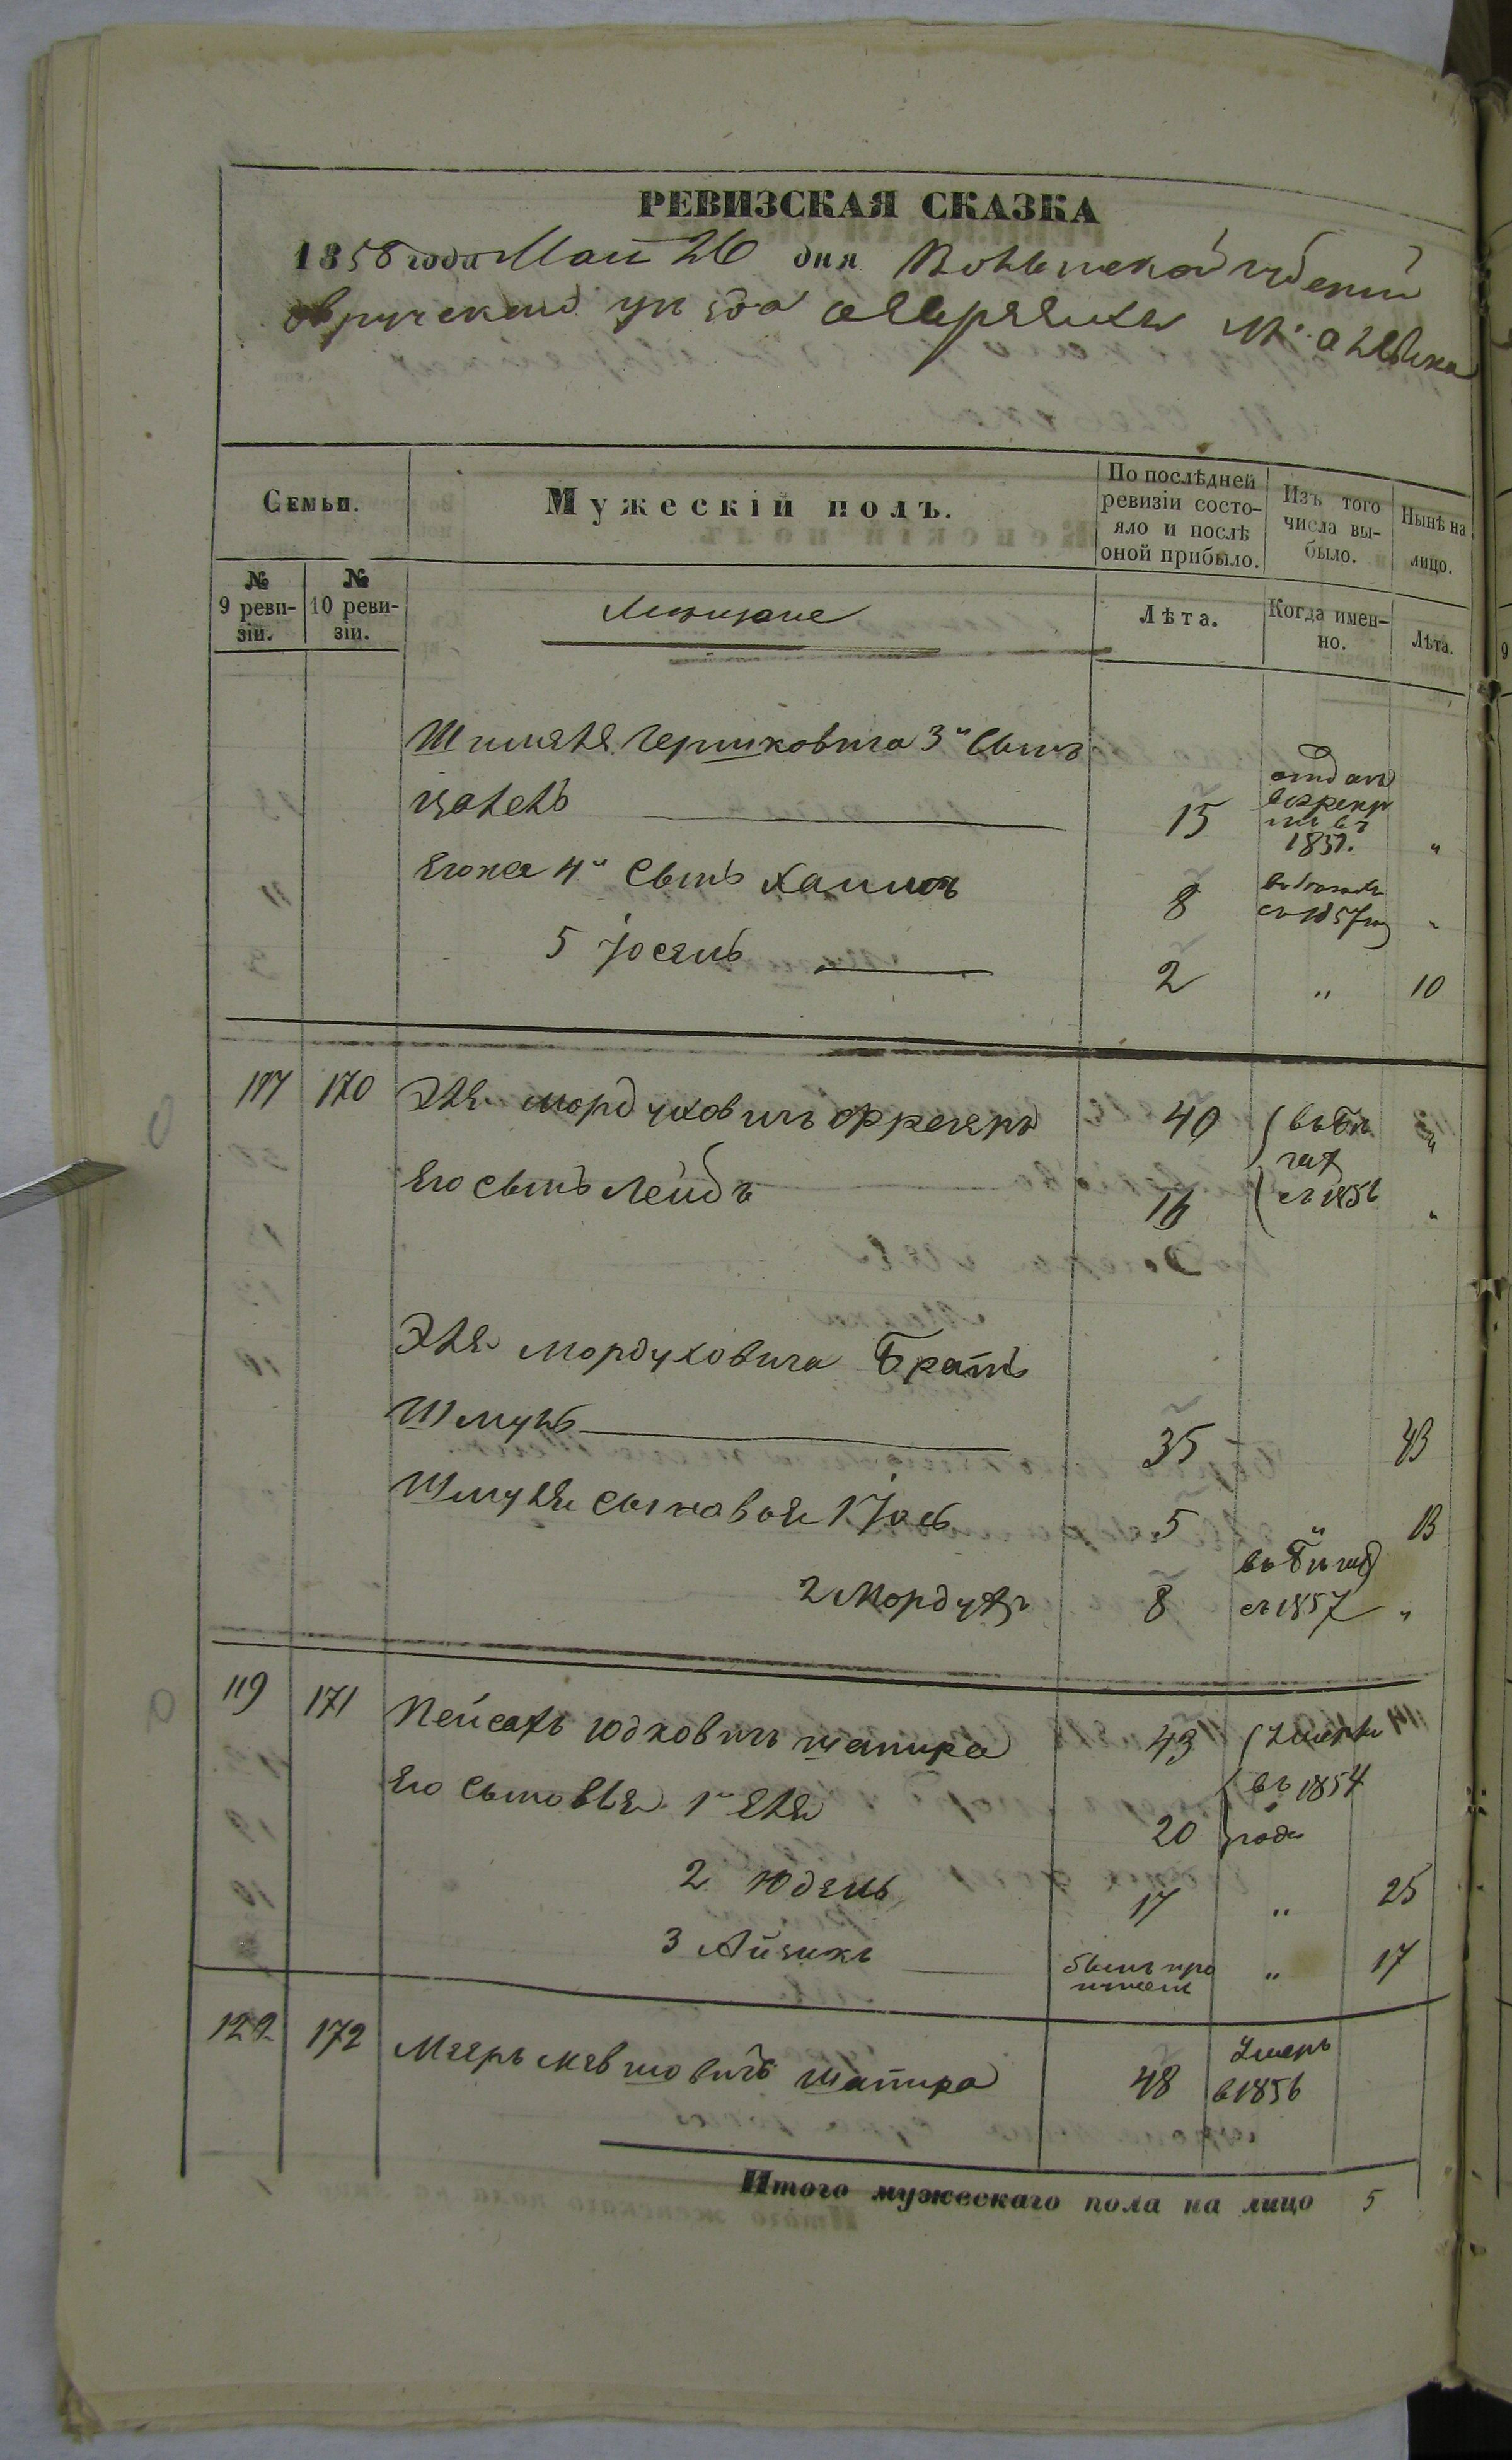 РЕВИЗСКАЯ СКАЗКА
1858 года Маи 26 дня Волынской губерніи
овручскаго уезда
Семьи.
Мужескій полъ.
По послѣдней ревизіи состояло и послѣ оной прибыло.
Изъ того числа выбыло.
Нынѣ на лицо.
№ 9 ревизіи.
№ 10 ревизіи.
Мещане
Лѣта.
Когда именно.
Лѣта.
Шмиля Гершковича 3й Сынъ
15 отданъ в рекруты въ 185 . "
Егоже 4й Сынъ Хаимъ 8 в 1857 "
5 Іосель 2 " 10
117 170 Эля Мордуховичъ 40 въ Бегах
Его сынъ Лейбъ 16 съ 1856 "
Эля Мордуховича Братъ
Шмуль 35 43
Шмуля сыновья 1 Іось 5 " 13
2 Мордухъ 8 въ Бегах съ 1857 "
119 171 Пейсахъ Юдковичъ шапира 43 Умерли
Его Сыновья 1й Эля 20 въ 1854 годе
2 Юдель 17 " 25
3 Айзикъ былъ пропущен " 17
122 172 Мееръ Мевшовичъ шапира 48 Умеръ в 1856
Итого мужескаго пола на лицо 5